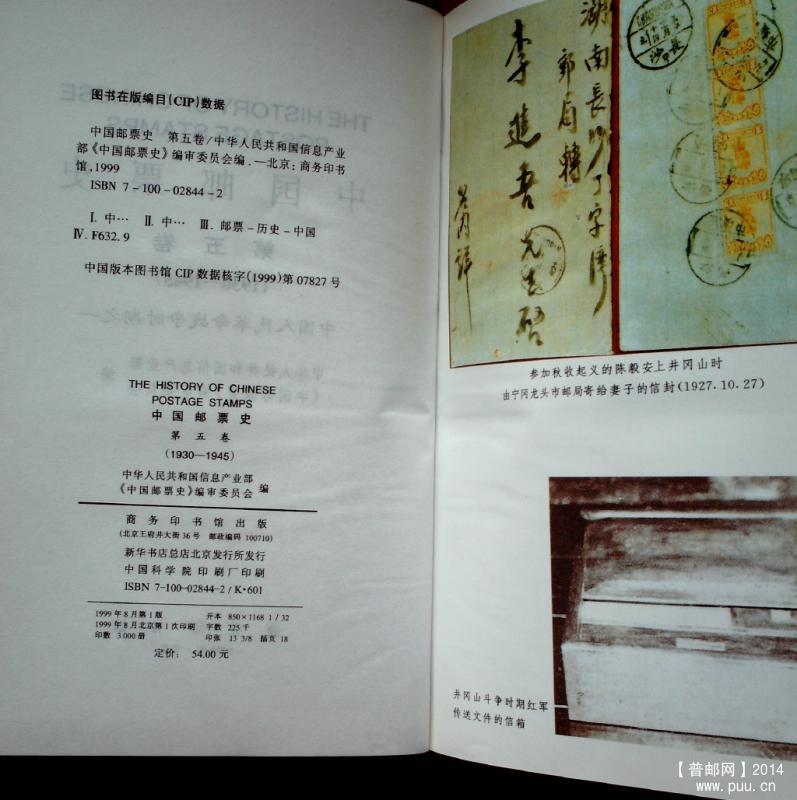 图书在版编目(CIP)数据
中国邮票史 第五卷/中华人民共和国信息产业
部《中国邮票史》编审委员会编.—北京:商务印书
馆,1999
ISBN 7-100-02844-2
Ⅰ.中… Ⅱ.中… Ⅲ.邮票-历史-中国
Ⅳ.F632.9
中国版本图书馆CIP数据核字(1999)第07827号
THE HISTORY OF CHINESE
POSTAGE STAMPS
中国邮票史
第五卷
(1930—1945)
中华人民共和国信息产业部
《中国邮票史》编审委员会 编
商务印书馆出版
(北京王府井大街36号 邮政编码 100710)
新华书店总店北京发行所发行
中国科学院印刷厂印刷
ISBN 7-100-02844-2/K·601
1999年8月第1版 开本 850×1168 1/32
1999年8月北京第1次印刷 字数 225千
印数 3 000册 印张 13 3/8 插页 18
定价: 54.00元
湖南長沙丁字灣
郵局轉
李進吾先生啟
長沙
参加秋收起义的陈毅安上井冈山时
由宁冈龙头市邮局寄给妻子的信封(1927.10.27)
井冈山斗争时期红军
传送文件的信箱
【普邮网】2014
www.puu.cn